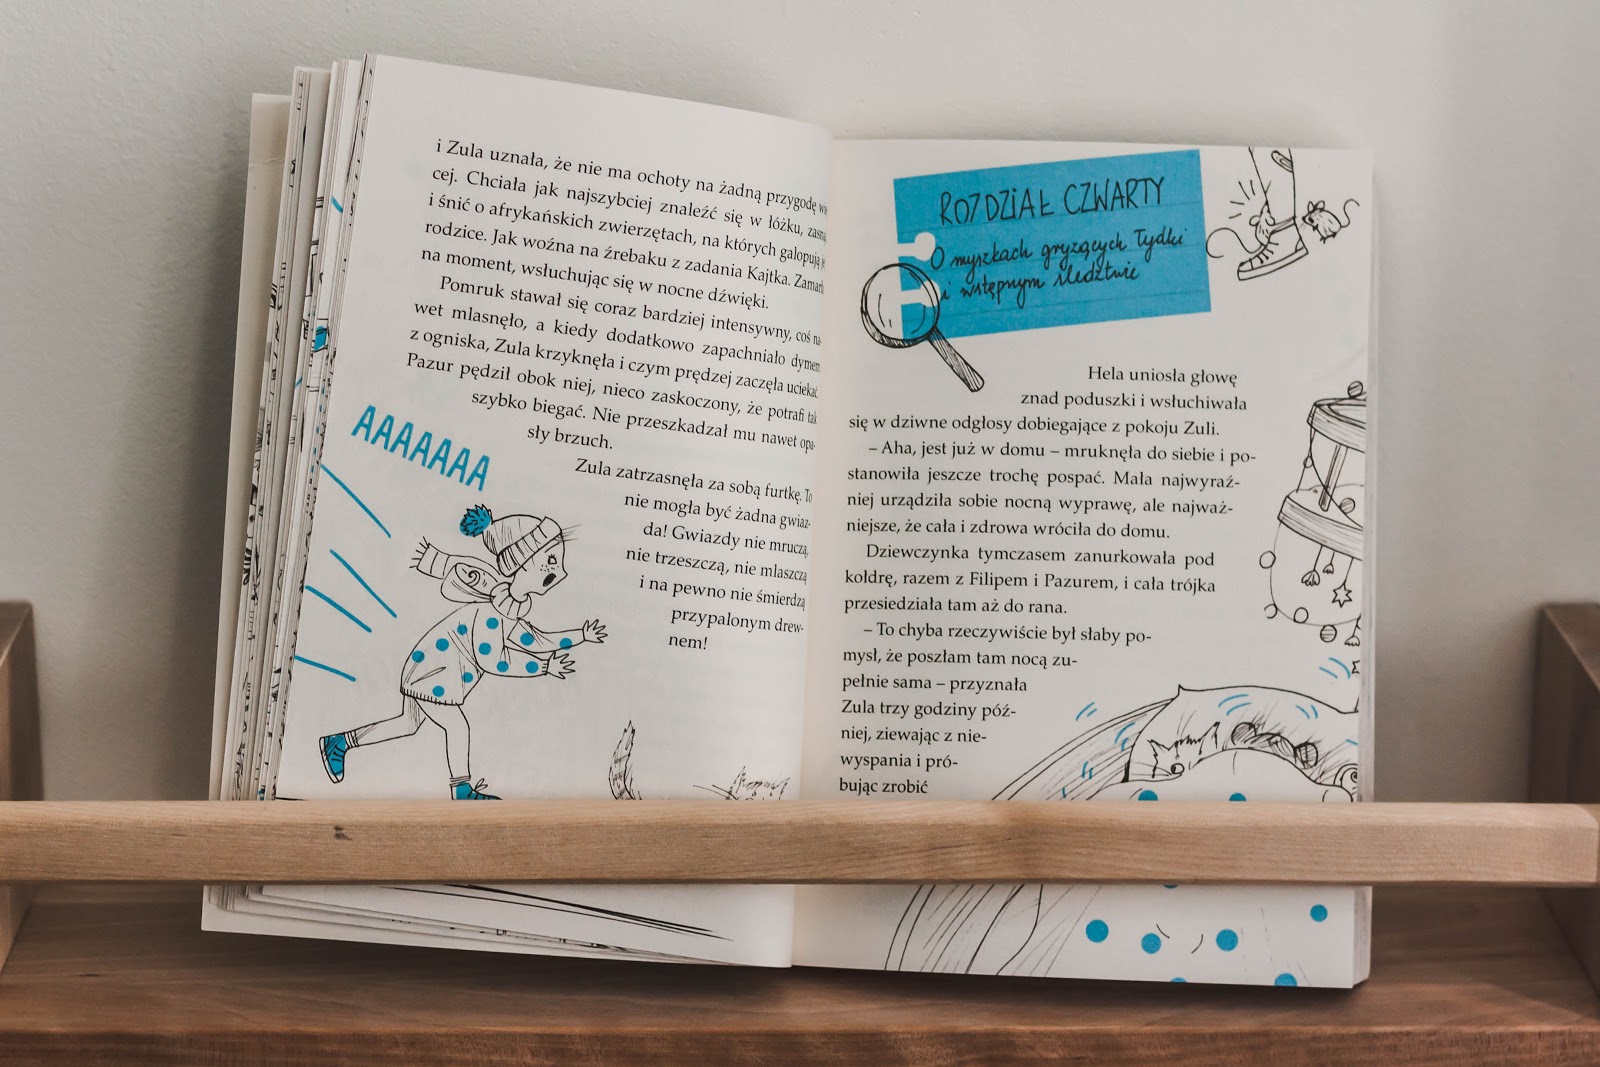 i Zula uznała, że nie ma ochoty na żadną przygodę
cej. Chciała jak najszybciej znaleźć się w łóżku,
i śnić o afrykańskich zwierzętach, na których galopują
rodzice. Jak woźna na źrebaku z zadania Kajtka.
na moment, wsłuchując się w nocne dźwięki.
Pomruk stawał się coraz bardziej intensywny, coś na-
wet mlasnęło, a kiedy dodatkowo zapachniało dymem
z ogniska, Zula krzyknęła i czym prędzej zaczęła uciekać.
Pazur pędził obok niej, nieco zaskoczony, że potrafi tak
szybko biegać. Nie przeszkadzał mu nawet opa-
sły brzuch.
AAAAAAA
Zula zatrzasnęła za sobą furtkę. To
nie mogła być żadna gwiaz-
da! Gwiazdy nie mruczą,
nie trzeszczą, nie mlaszczą
i na pewno nie śmierdzą
przypalonym drew-
nem!
ROZDZIAŁ CZWARTY
O myszkach gryzących łydki
i wstępnym śledztwie
Hela uniosła głowę
znad poduszki i wsłuchiwała
się w dziwne odgłosy dobiegające z pokoju Zuli.
– Aha, jest już w domu – mruknęła do siebie i po-
stanowiła jeszcze trochę pospać. Mała najwyraź-
niej urządziła sobie nocną wyprawę, ale najważ-
niejsze, że cała i zdrowa wróciła do domu.
Dziewczynka tymczasem zanurkowała pod
kołdrę, razem z Filipem i Pazurem, i cała trójka
przesiedziała tam aż do rana.
– To chyba rzeczywiście był słaby po-
mysł, że poszłam tam nocą zu-
pełnie sama – przyznała
Zula trzy godziny póź-
niej, ziewając z nie-
wyspania i pró-
bując zrobić